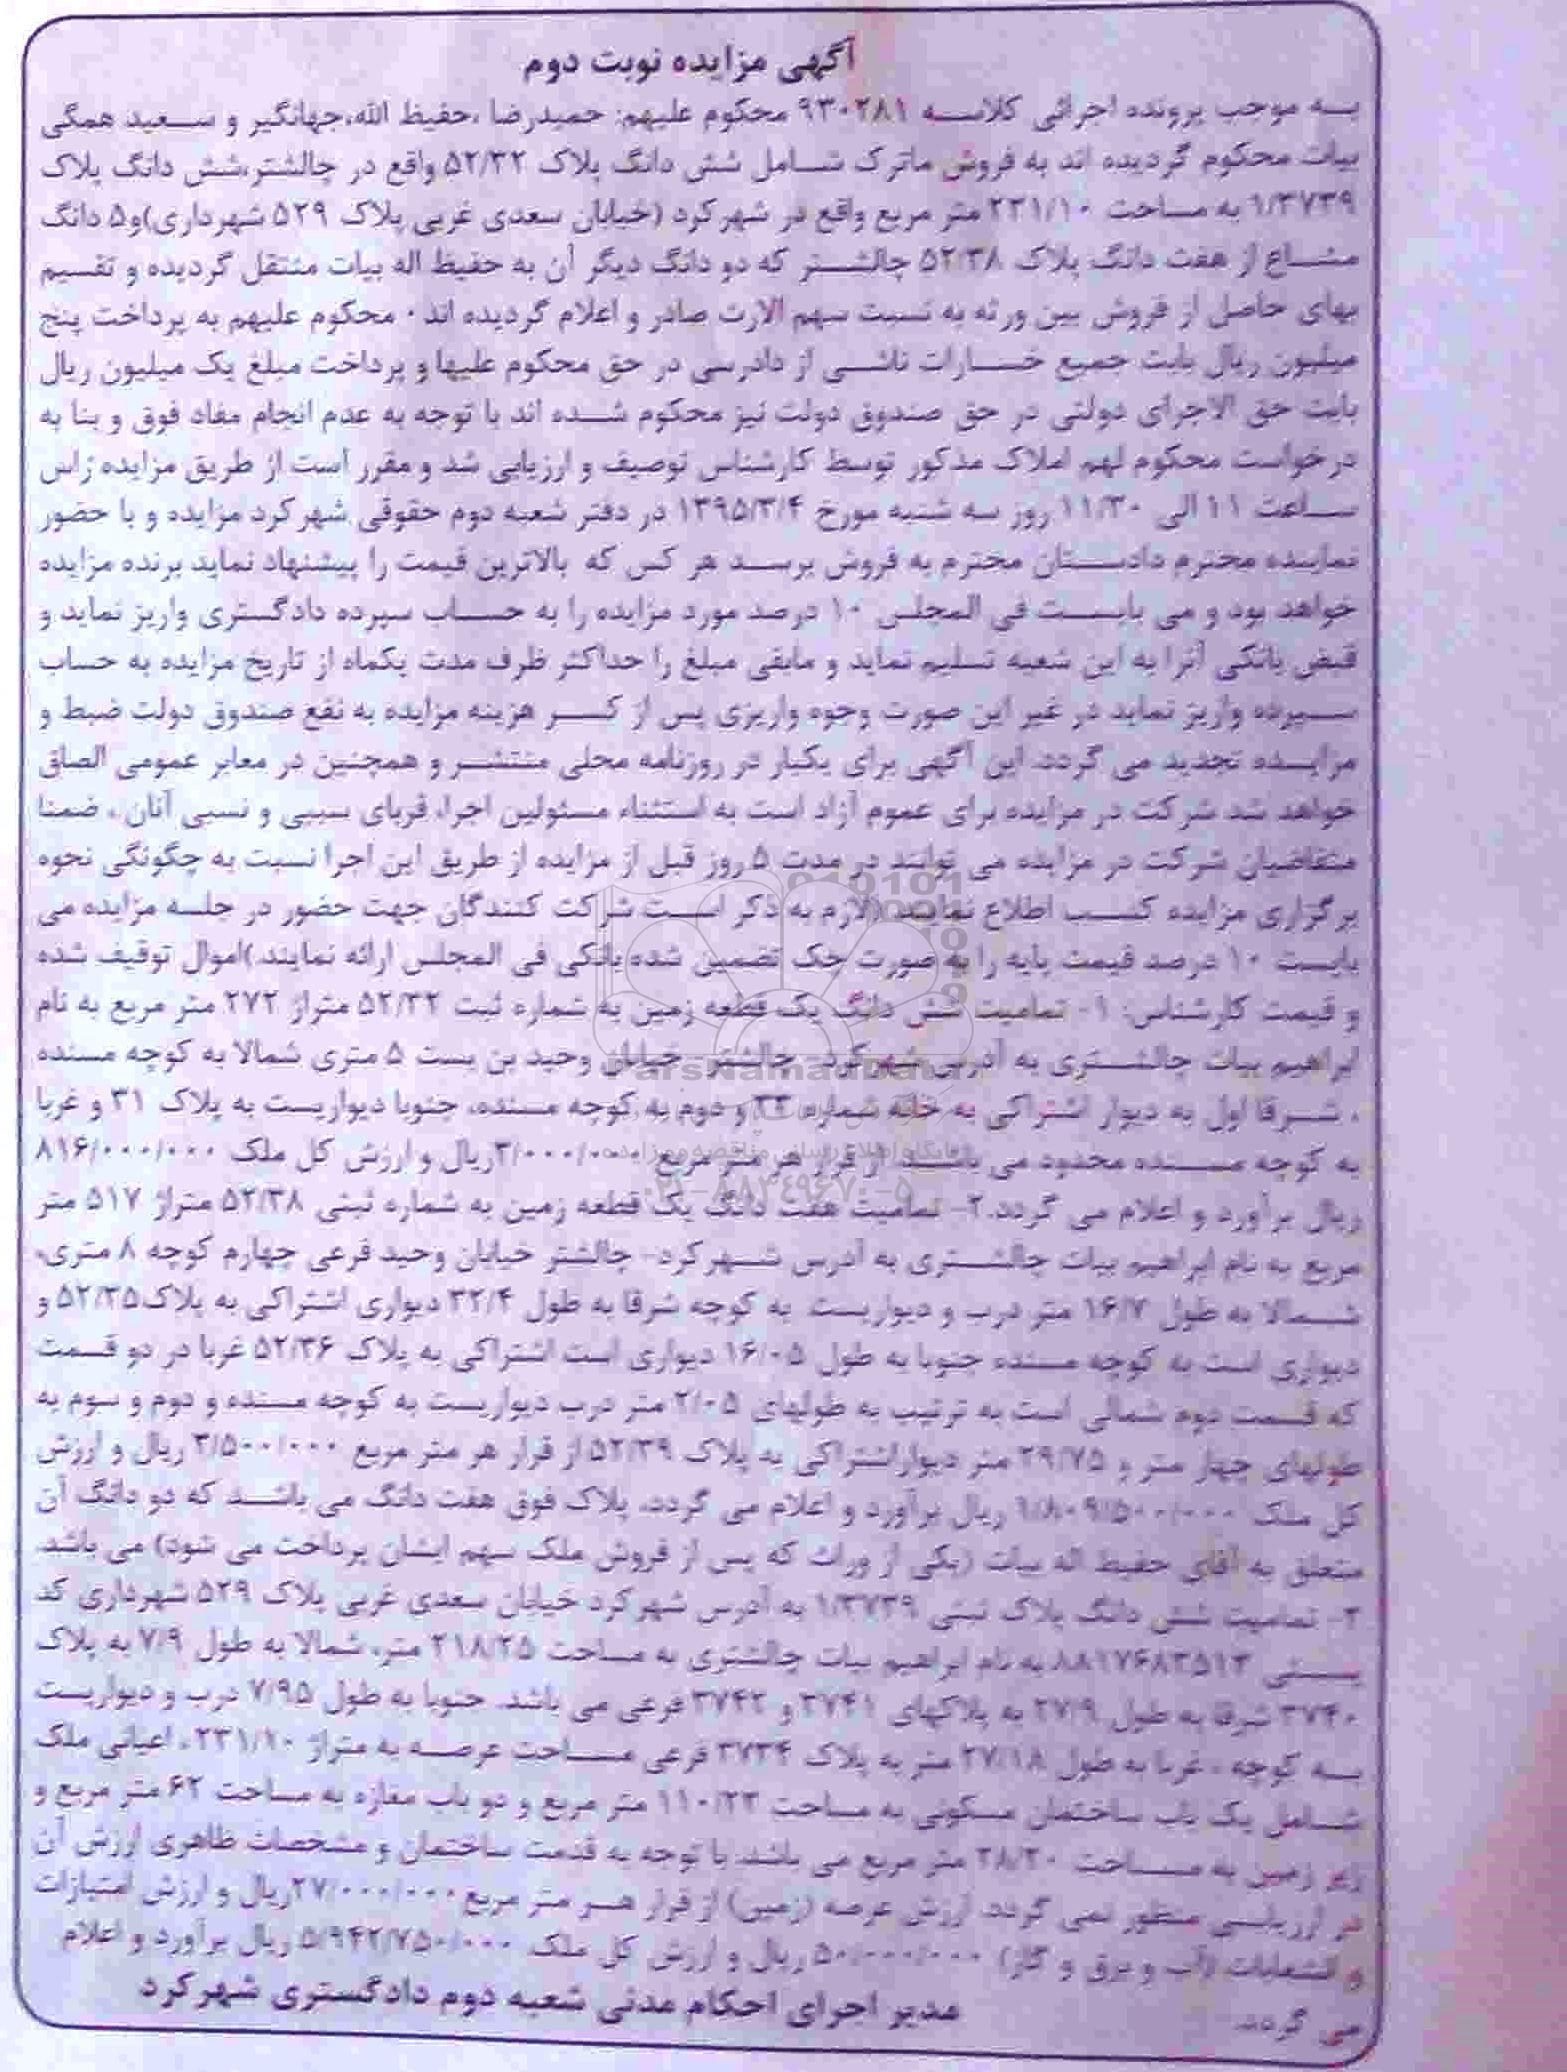 آگهی مزایده نوبت دوم
به موجب پرونده اجرائی کلاسه ۹۳۰۲۸۱ محکوم علیهم: حمیدرضا ،حفیظ الله،جهانگیر و سعید همگی
بیات محکوم گردیده اند به فروش ماترک شامل شش دانگ پلاک ۵۲/۳۲ واقع در چالشتر،شش دانگ پلاک
۱/۳۷۳۹ به مساحت ۲۳۱/۱۰ متر مربع واقع در شهرکرد (خیابان سعدی غربی پلاک ۵۲۹ شهرداری)و۵ دانگ
مشاع از هفت دانگ پلاک ۵۲/۳۸ چالشتر که دو دانگ دیگر آن به حفیظ اله بیات منتقل گردیده و تقسیم
بهای حاصل از فروش بین ورثه به نسبت سهم الارث صادر و اعلام گردیده اند۰ محکوم علیهم به پرداخت پنج
میلیون ریال بابت جمیع خسارات ناشی از دادرسی در حق محکوم علیها و پرداخت مبلغ یک میلیون ریال
بابت حق الاجرای دولتی در حق صندوق دولت نیز محکوم شده اند با توجه به عدم انجام مفاد فوق و بنا به
درخواست محکوم لهم املاک مذکور توسط کارشناس توصیف و ارزیابی شد و مقرر است از طریق مزایده راس
ساعت ۱۱ الی ۱۱/۳۰ روز سه شنبه مورخ ۱۳۹۵/۳/۴ در دفتر شعبه دوم حقوقی شهرکرد مزایده و با حضور
نماینده محترم دادستان محترم به فروش برسد هر کس که بالاترین قیمت را پیشنهاد نماید برنده مزایده
خواهد بود و می بایست فی المجلس ۱۰ درصد مورد مزایده را به حساب سپرده دادگستری واریز نماید و
قبض بانکی آنرا به این شعبه تسلیم نماید و مابقی مبلغ را حداکثر ظرف مدت یکماه از تاریخ مزایده به حساب
سپرده واریز نماید در غیر این صورت وجوه واریزی پس از کسر هزینه مزایده به نفع صندوق دولت ضبط و
مزایده تجدید می گردد. این آگهی برای یکبار در روزنامه محلی منتشر و همچنین در معابر عمومی الصاق
خواهد شد شرکت در مزایده برای عموم آزاد است به استثناء مسئولین اجرا، قربای سببی و نسبی آنان ، ضمنا
متقاضیان شرکت در مزایده می توانند در مدت ۵ روز قبل از مزایده از طریق این اجرا نسبت به چگونگی نحوه
برگزاری مزایده کسب اطلاع نمایند. (لازم به ذکر است شرکت کنندگان جهت حضور در جلسه مزایده می
بایست ۱۰ درصد قیمت پایه را به صورت چک تضمین شده بانکی فی المجلس ارائه نمایند.)اموال توقیف شده
و قیمت کارشناس: ۱- تمامیت شش دانگ یک قطعه زمین به شماره ثبت ۵۲/۳۲ متراژ ۲۷۲ متر مربع به نام
ابراهیم بیات چالشتری به آدرس شهرکرد- چالشتر خیابان وحید بن بست ۵ متری شمالا به کوچه مسنده
، شرقا اول به دیوار اشتراکی به خانه شماره ۳۳ و دوم به کوچه مسنده، جنوبا دیواریست به پلاک ۳۱ و غربا
به کوچه مسنده محدود می باشد. از قرار هر متر مربع ۳/۰۰۰/۰۰۰ریال و ارزش کل ملک ۸۱۶/۰۰۰/۰۰۰
ریال برآورد و اعلام می گردد.۲- تمامیت هفت دانگ یک قطعه زمین به شماره ثبتی ۵۲/۳۸ متراژ ۵۱۷ متر
مربع به نام ابراهیم بیات چالشتری به آدرس شهرکرد- چالشتر خیابان وحید فرعی چهارم کوچه ۸ متری،
شمالا به طول ۱۶/۷ متر درب و دیواریست به کوچه شرقا به طول ۳۲/۴ دیواری اشتراکی به پلاک۵۲/۳۵ و
دیواری است به کوچه مسنده جنوبا به طول ۱۶/۰۵ دیواری است اشتراکی به پلاک ۵۲/۳۶ غربا در دو قسمت
که قسمت دوم شمالی است به ترتیب به طولهای ۲/۰۵ متر درب دیواریست به کوچه مسنده و دوم و سوم به
طولهای چهار متر و ۲۹/۷۵ متر دیواراشتراکی به پلاک ۵۲/۳۹ از قرار هر متر مربع ۳/۵۰۰/۰۰۰ ریال و ارزش
کل ملک ۱/۸۰۹/۵۰۰/۰۰۰ ریال برآورد و اعلام می گردد. پلاک فوق هفت دانگ می باشد که دو دانگ آن
متعلق به آقای حفیظ اله بیات (یکی از وراث که پس از فروش ملک سهم ایشان پرداخت می شود) می باشد.
۳- تمامیت شش دانگ پلاک ثبتی ۱/۳۷۳۹ به آدرس شهرکرد خیابان سعدی غربی پلاک ۵۲۹ شهرداری کد
پستی ۸۸۱۷۶۸۳۵۱۳ به نام ابراهیم بیات چالشتری به مساحت ۲۱۸/۲۵ متر، شمالا به طول ۷/۹ به پلاک
۳۷۴۰ شرقا به طول ۲۷/۹ به پلاکهای ۳۷۴۱ و ۳۷۴۲ فرعی می باشد. جنوبا به طول ۷/۹۵ درب و دیواریست
به کوچه ، غربا به طول ۲۷/۱۸ متر به پلاک ۳۷۳۴ فرعی مساحت عرصه به متراژ ۲۳۱/۱۰ ، اعیانی ملک
شامل یک باب ساختمان مسکونی به مساحت ۱۱۰/۲۳ متر مربع و دو باب مغازه به مساحت ۶۲ متر مربع و
زیر زمین به مساحت ۳۸/۲۰ متر مربع می باشد. با توجه به قدمت ساختمان و مشخصات ظاهری ارزش آن
در ارزیابی منظور نمی گردد. ارزش عرصه (زمین) از قرار هر متر مربع۲۷/۰۰۰/۰۰۰ریال و ارزش امتیازات
و انشعابات (آب و برق و گاز) ۵۰/۰۰۰/۰۰۰ ریال و ارزش کل ملک ۵/۹۴۲/۷۵۰/۰۰۰ ریال برآورد و اعلام
می گردد.
مدیر اجرای احکام مدنی شعبه دوم دادگستری شهرکرد
ParsNamadData
پایگاه اطلاع رسانی مناقصه و مزایده
۰۲۱-۸۸۳۴۹۶۷۰-۵